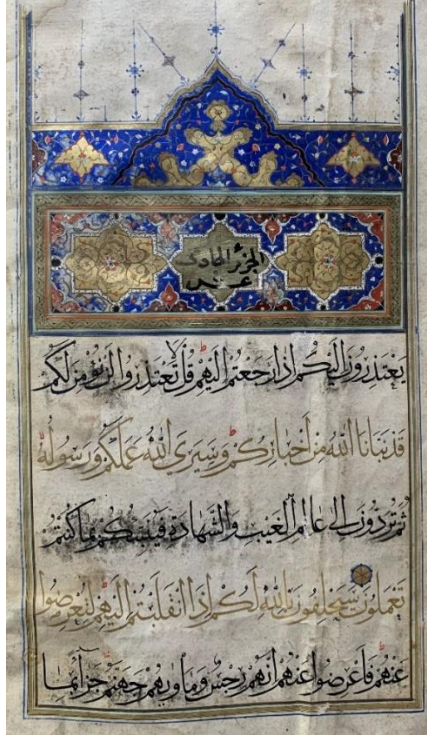 الجزئ الحادی
عشر
يَعْتَذِرُونَ اِلَيْكُمْ اِذَا رَجَعْتُمْ اِلَيْهِمْ قُلْ لَا تَعْتَذِرُوا لَنْ نُؤْمِنَ لَكُمْ
قَدْ نَبَّاَنَا اللّٰهُ مِنْ اَخْبَارِكُمْ وَسَيَرَى اللّٰهُ عَمَلَكُمْ وَرَسُولُهُ
ثُمَّ تُرَدُّونَ اِلٰى عَالِمِ الْغَيْبِ وَالشَّهَادَةِ فَيُنَبِّئُكُمْ بِمَا كُنْتُمْ
تَعْمَلُونَ سَيَحْلِفُونَ بِاللّٰهِ لَكُمْ اِذَا انْقَلَبْتُمْ اِلَيْهِمْ لِتُعْرِضُوا
عَنْهُمْ فَاَعْرِضُوا عَنْهُمْ اِنَّهُمْ رِجْسٌ وَمَاْوٰيهُمْ جَهَنَّمُ جَزَآءً بِمَا